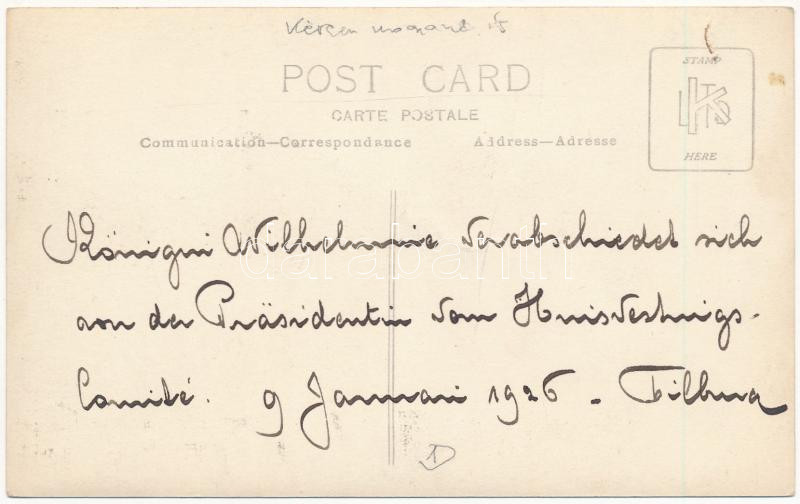 POST CARD
CARTE POSTALE
Communication—Correspondance Address—Adresse
STAMP
HERE
Königin Wilhelmine verabschiedet sich
von der Präsidentin vom Huisvestings-
Comité. 9 Januari 1926 - Tilburg
1
darabanth